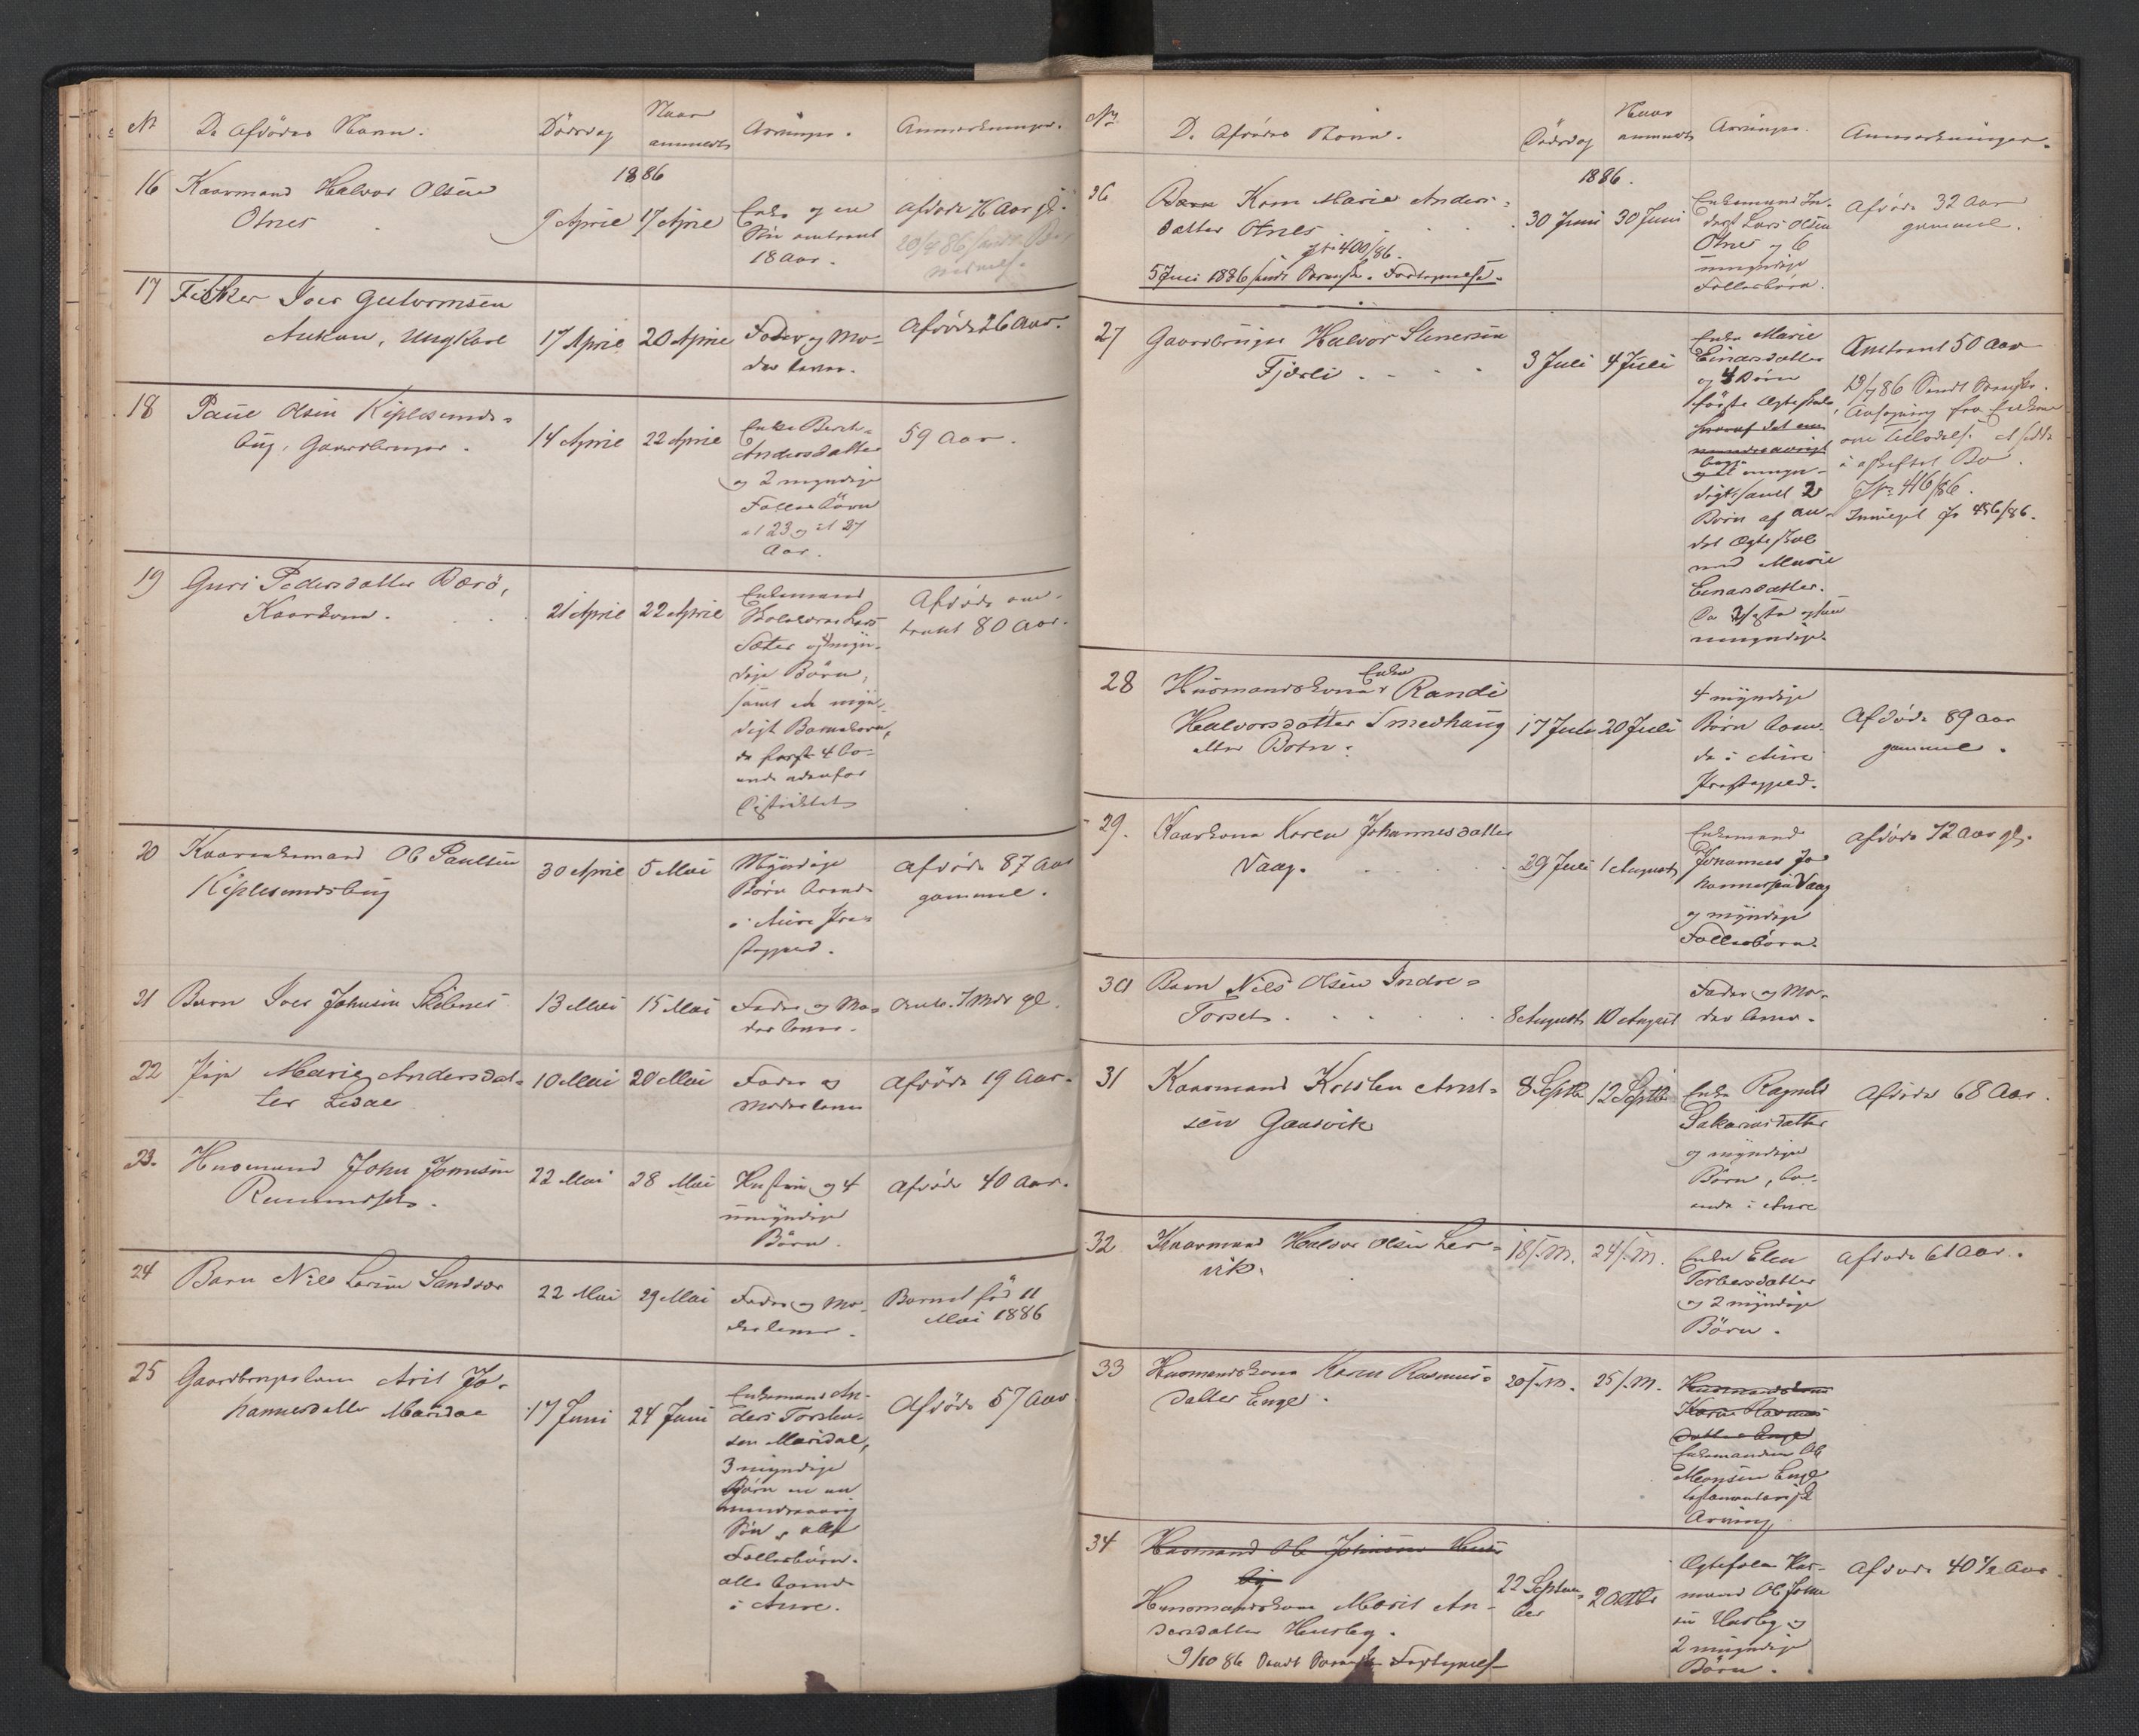 No De Afdødes Navn. Dødsdag Naar anmeldt Arvinger. Anmærkninger.
1886
16 Kaarmand Halvor Olsen
Otnes
9 April 17 April
Enke og en
Søn omtrent
18 Aar.
Afdøde
20/4 86
17 Fisker Iver Gutormsen
Aukan, Ungkarl
17 April 20 April
Fader og Mo-
der lever.
Afdøde 26 Aar.
18 Paul Olsen Kiplesunds-
bug, Gaardbruger.
14 April 22 April
Enke Berit
Andersdatter
og 2 myndige
Fællesbörn
et 23 og et 27
Aar.
59 Aar.
19 Guri Pedersdatter Bærö,
Kaarkone.
21 April 22 April
Enkemand
Lars
Sæter og myn-
dige Börn,
samt et myn-
digt Barnebarn,
de förste 4 bo-
ende udenfor
Distriktet
Afdøde om-
trent 80 Aar.
20 Kaarenkemand Ole Paulsen
Kiplesundsbug
30 April 5 Mai
Myndige
Börn boende
i Aure Præ-
stegjeld.
Afdøde 87 Aar
gammel.
21 Barn Iver Johnsen Skibnes
13 Mai 15 Mai
Fader og Mo-
der lever.
Omtr. 7 Mdr gl.
22 Pige Marie Andersdat-
ter Lidal
10 Mai 20 Mai
Fader og
Moder lever
Afdøde 19 Aar.
23. Husmand John Johnsen
22 Mai 28 Mai
Hustru og 4
umyndige
Börn.
Afdøde 40 Aar.
24 Barn Nils Larsen Sandvær
22 Mai 29 Mai
Fader og Mo-
der lever.
Barnet fød 11
Mai 1886
25 Gaardbrugerkone Arit Jo-
hannesdatter Maridal
17 Juni 24 Juni
Enkemand An-
ders Torsten-
sen Maridal,
3 myndige
Börn en en
mindreaarig
Sön, alle
Fællesbörn.
alle boende
i Aure.
Afdøde 57 Aar
No De Afdødes Navn. Dødsdag Naar anmeldt Arvinger. Anmærkninger.
1886.
26 Barn Kone Marie Anders-
datter Otnes
Jr 400/86.
5 Juli 1886 sendt
30 Juni 30 Juni
Enkemand In-
derst Lars Olsen
Otnes og 6
umyndige
Fællesbörn.
Afdøde 32 Aar
gammel.
27 Gaardbruger Halvor Stenersen
Fjærli
3 Juli 4 Juli
Enke Marie
Einarsdatter
og 4 Börn
förste Ægteskab,
hvoraf det ene
mindreaarigt
digt, samt 2
Börn af an-
det Ægteskab
med Marie
Einarsdatter.
De 2 sidste ogsaa
umyndige.
Omtrent 50 Aar
19/7 86 Sendt
Ansögning fra Enken
om Tilladelse at sidde
i uskiftet Bo.
JNr 416/86.
Jr 456/86.
28 Husmandskone Enke Randi
Halvorsdatter Smedhaug
eller Botn.
17 Juli 20 Juli
4 myndige
Börn boen-
de i Aure
Præstegjeld.
Afdøde 89 Aar
gammel.
29. Kaarkone Karen Johannesdatter
Vaag.
29 Juli 1 August
Enkemand
Johannes Jo-
hannessen Vaag
og myndige
Fællesbörn.
Afdøde 72 Aar gl.
30 Barn Nils Olsen Indre-
Torset
8 August 10 August
Fader og Mo-
der lever.
31 Kaarmand Kristen Arnt-
sen Gaasvik
8 Septbr 12 Septbr
Enke Ragnild
Sakariasdatter
og myndige
Börn, bo-
ende i Aure
Afdøde 68 Aar.
32 Kaarmand Halvor Olsen Ler-
vik.
18/s.M. 24/s.M.
Enke Elen
Torbersdatter
og 2 myndige
Börn.
Afdøde 61 Aar.
33 Husmandskone Karen Rasmus-
datter Enge.
20/s.M. 25/s.M.
Husmandskone
Karen Rasmus
datter Enge
Enkemanden Ole
Monsen Enge
testamentarisk
Arving
34 Husmand Ole Johnsen Hus-
by
Husmandskone Marit An-
dersdatter Husby.
9/10 86 Sendt
22 Septem-
ber
2 Octbr
Ægtefælle Hus-
mand Ole John-
sen Husby og
2 umyndige
Börn.
Afdøde 40 1/2 Aar.